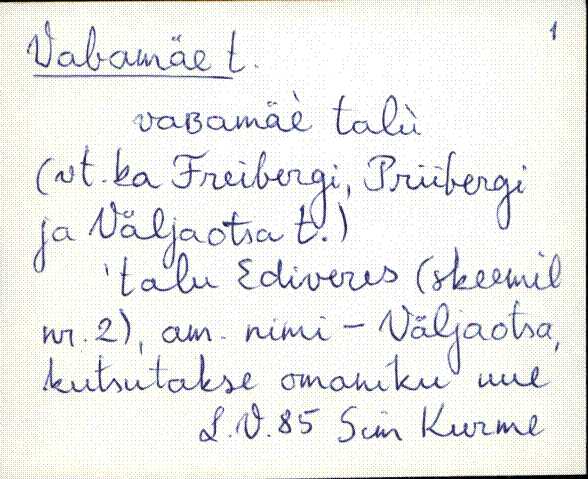 1
Vabamäe t.
vaBamäè talù
(vt. ka Freibergi, Priibergi
ja Väljaotsa t.)
'talu Ediveres (skeemil
nr. 2), am. nimi - Väljaotsa,
kutsutakse omaniku uue
L.V. 85 Siim Kurme